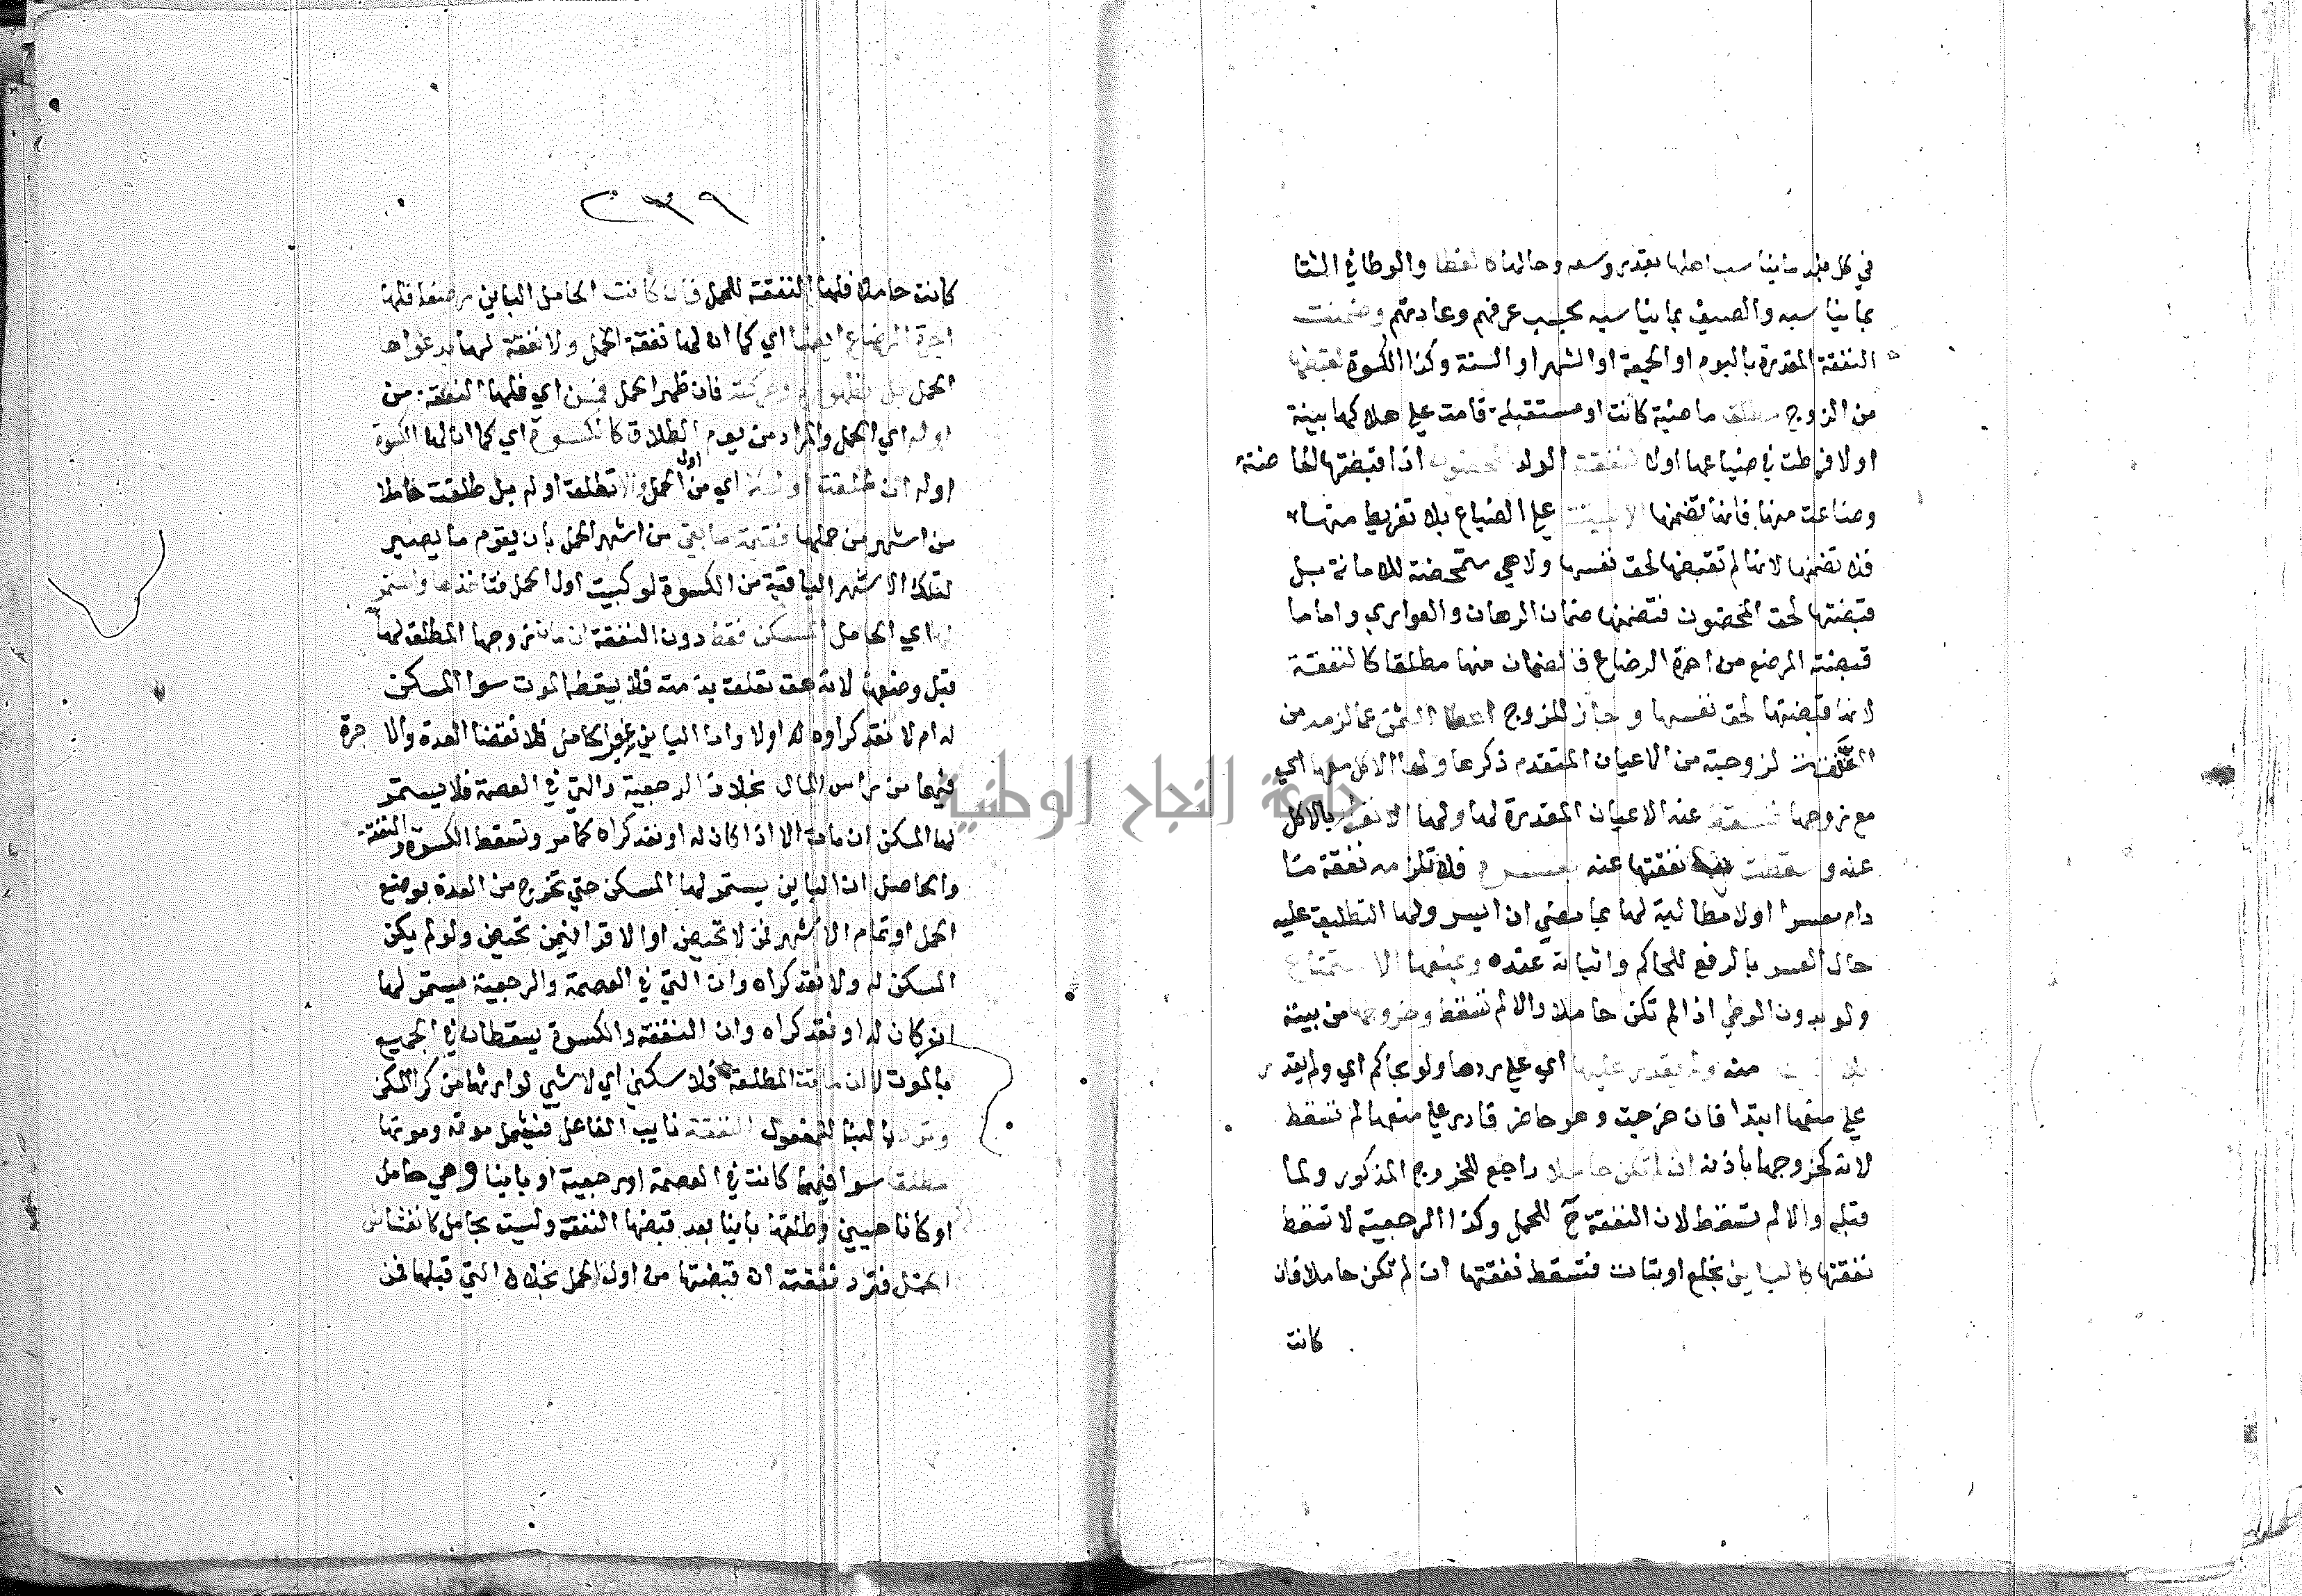 في كل بلد ما يناسب اهلها بقدر وسعه وحالها والوطا في الشتا
بما يناسبه والصيف بما يناسبه بحسب عرفهم وعادتهم وضمنت
النفقة المقدرة باليوم او الجمعة او الشهر او السنة وكذا الكسوة بقبضها
من الزوج مطلقا ماضية كانت او مستقبلة قامت علي هلاكها بينة
اولا فرطت في ضياعها اولا كنفقة الولد المحضون اذا قبضتها الحاضنة
وضاعت منها فانها تضمنها الا لبينة علي الضياع بلا تفريط منها
فلا تضمنها لانها لم تقبضها لحق نفسها ولا هي متمحضة للامانة بل
قبضتها لحق المحضون فتضمنها ضمان الرهان والعواري واما ما
قبضته المرضع من اجرة الرضاع فالضمان منها مطلقا كالنفقة
لانها قبضتها لحق نفسها وجاز للزوج اعطا الثمن عما لزمه من
لزوجته من الاعيان المتقدم ذكرها ولها الاكل معه اي
مع زوجها فتسقط عنه الاعيان المقدرة لها ولها الانفراد بالاكل
عنه وسقطت نفقتها عنه بعسره فلا تلزمه نفقة ما
دام معسرا اولا مطالبة لها بما مضي ان ايسر ولها التطليق عليه
حال العسر بالرفع للحاكم واثباته عنده وبمنعها الاستمتاع
ولو بدون الوطي اذا لم تكن حاملا والا لم تسقط وخروجها من بيته
بلا اذن منه ولم يقدر عليها اي علي ردها ولو بحاكم اي ولم يقدر
علي منعها ابتدا فان خرجت وهو حاضر قادر علي منعها لم تسقط
لانه كخروجها باذنه ان لم تكن حاملا راجع للخروج المذكور ولما
قبله والا لم تسقط لان النفقة ح للحمل وكذا الرجعية لا تسقط
نفقتها كالباين بخلع او بتات فتسقط نفقتها ان لم تكن حاملا فان
كانت
٢٣٩
كانت حاملا فلها النفقة للحمل فان كانت الحامل الباين مرضعا فلها
اجرة الرضاع ايضا اي كما ان لها نفقة الحمل ولا نفقة لها بدعواها
الحمل بل بظهوره وحركته فان ظهر الحمل فمن اي فلها النفقة من
اوله اي الحمل والمراد من يوم الطلاق كالكسوة اي كما ان لها الكسوة
اوله ان طلقت اي من اول الحمل والا تطلق اوله بل طلقت حاملا
من اشهر من حملها فقيمة ما بقي من اشهر الحمل بان يقوم ما يصير
لتلك الاشهر الباقية من الكسوة لو كسيت اول الحمل فتاخذها واستمر
لها اي الحامل المسكن فقط دون النفقة ان مات زوجها المطلق لها
قبل وضعها لانه حق تعلق بذمته فلا يسقطه الموت سوا المسكن
له ام لا نقد كراوه ام لا واما الباين غير الحامل فلانقضا العدة والاجرة
فيهما من راس المال بخلاف الرجعية والتي في العصمة فلا يستمر
لها المسكن ان مات الا اذا كان له او نقد كراه كما مر وتسقط الكسوة والنفقة
والحاصل ان الباين يستمر لها المسكن حتي تخرج من العدة بوضع
الحمل او تمام الاشهر لمن لا تحيض او الاقرا فيمن تحيض ولو لم يكن
المسكن له ولا نقد كراه وان التي في العصمة والرجعية يستمر لها
ان كان له او نقد كراه وان النفقة والكسوة يسقطان في الجميع
بالموت لا ان ماتت المطلقة فلا سكني اي لا شي لوارثها من كرا المسكن
وترد بالبنا للمفعول النفقة نايب الفاعل فيشمل موته وموتها
مطلقا سوا فيهما كانت في العصمة او رجعية او باينا وهي حامل
او كانا حيين وطلقها باينا بعد قبضها النفقة وليست بحامل كانفشاش
الحمل فترد نفقته ان قبضتها من اول الحمل بخلاف التي قبلها فمن
جامعة النجاح الوطنية